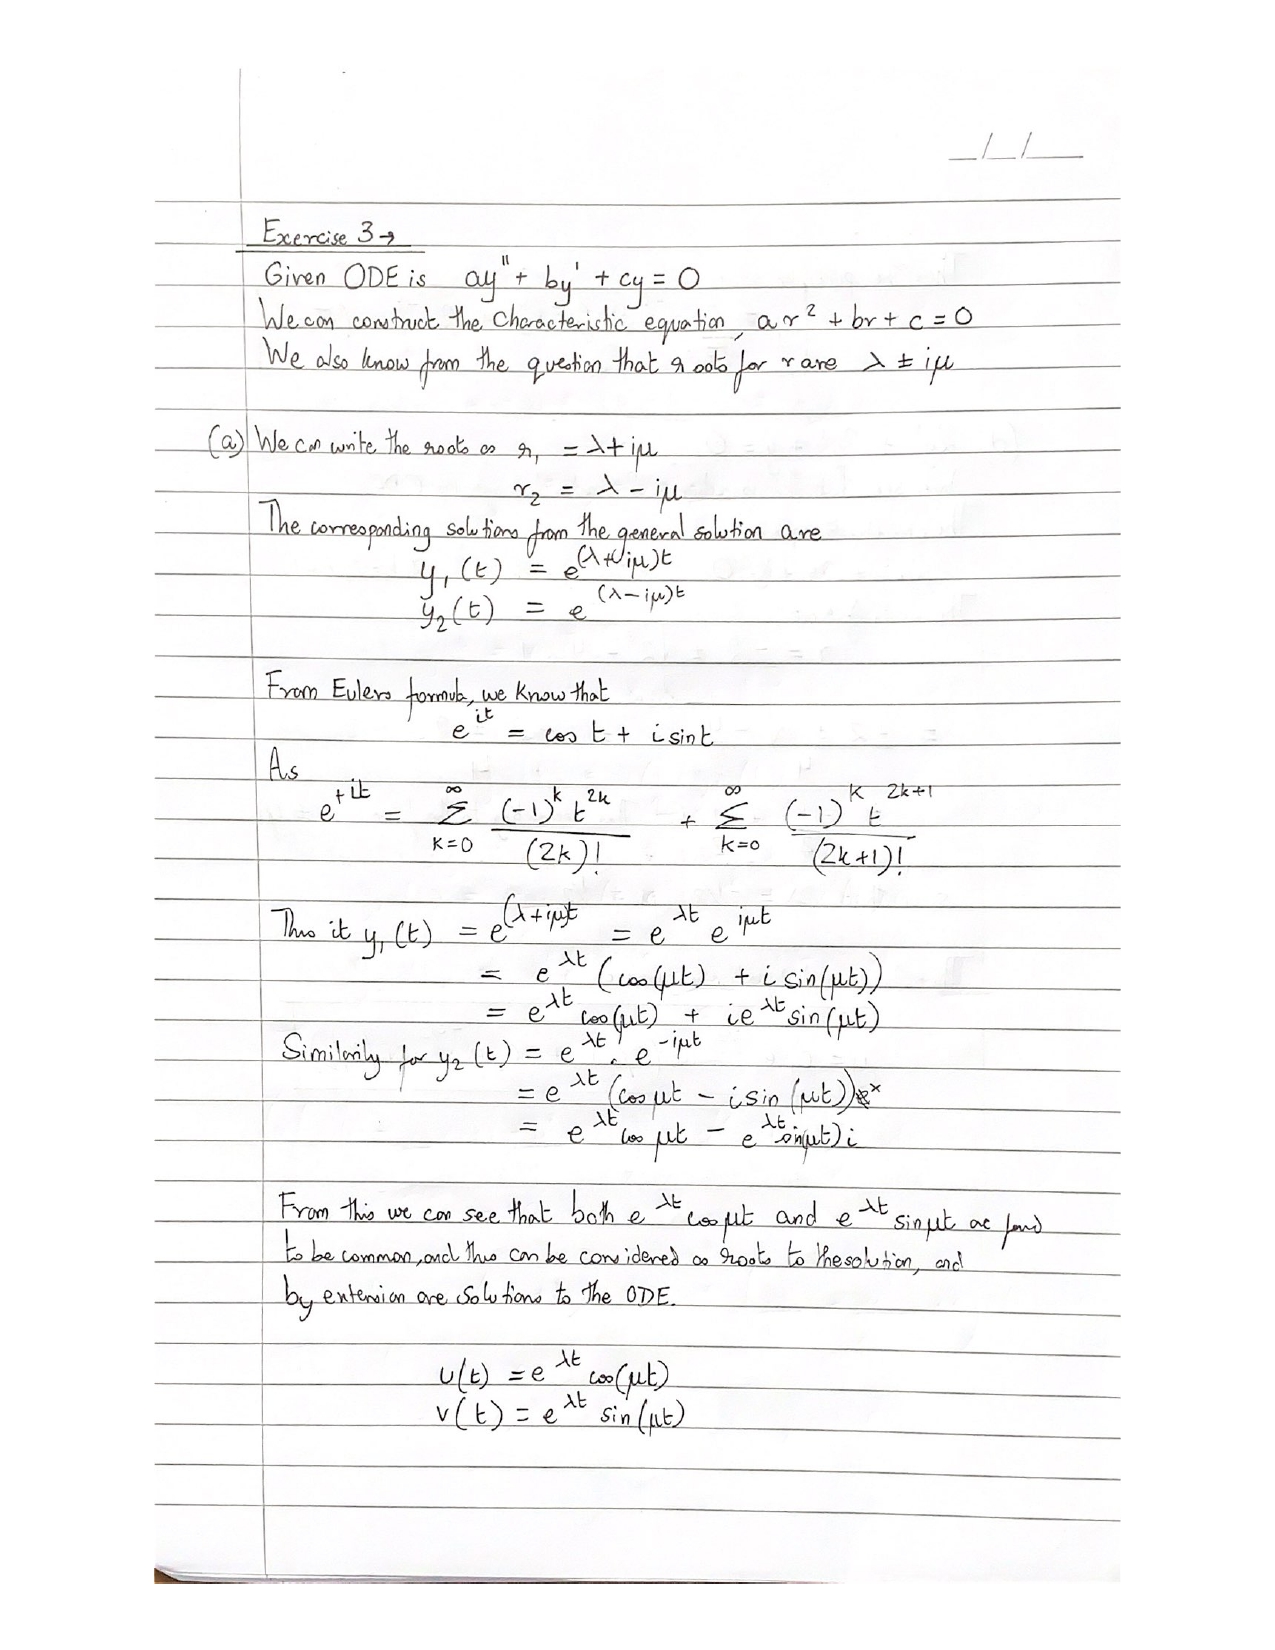 _/_/_
Exercise 3→
Given ODE is ay'' + by' + cy = 0
We can construct the characteristic equation, ar² + br + c = 0
We also know from the question that roots for r are λ ± iμ
(a) We can write the roots as r₁ = λ + iμ
r₂ = λ - iμ
The corresponding solutions from the general solution are
y₁(t) = e^(λ+iμ)t
y₂(t) = e^(λ-iμ)t
From Eulers formula, we know that
e^it = cos t + i sin t
As
e^+it = ∞Σk=0 (-1)^k t^2k / (2k)! + ∞Σk=0 (-1)^k t^2k+1 / (2k+1)!
Thus it y₁(t) = e^(λ+iμ)t = e^λt e^iμt
= e^λt (cos(μt) + i sin(μt))
= e^λt cos(μt) + ie^λt sin(μt)
Similarily for y₂(t) = e^λt . e^-iμt
= e^λt (cos μt - i sin (μt))
= e^λt cos μt - e^λt sin(μt) i
From this we can see that both e^λt cos μt and e^λt sin μt are found
to be common, and thus can be considered as roots to the solution, and
by extension are solutions to the ODE.
u(t) = e^λt cos(μt)
v(t) = e^λt sin(μt)